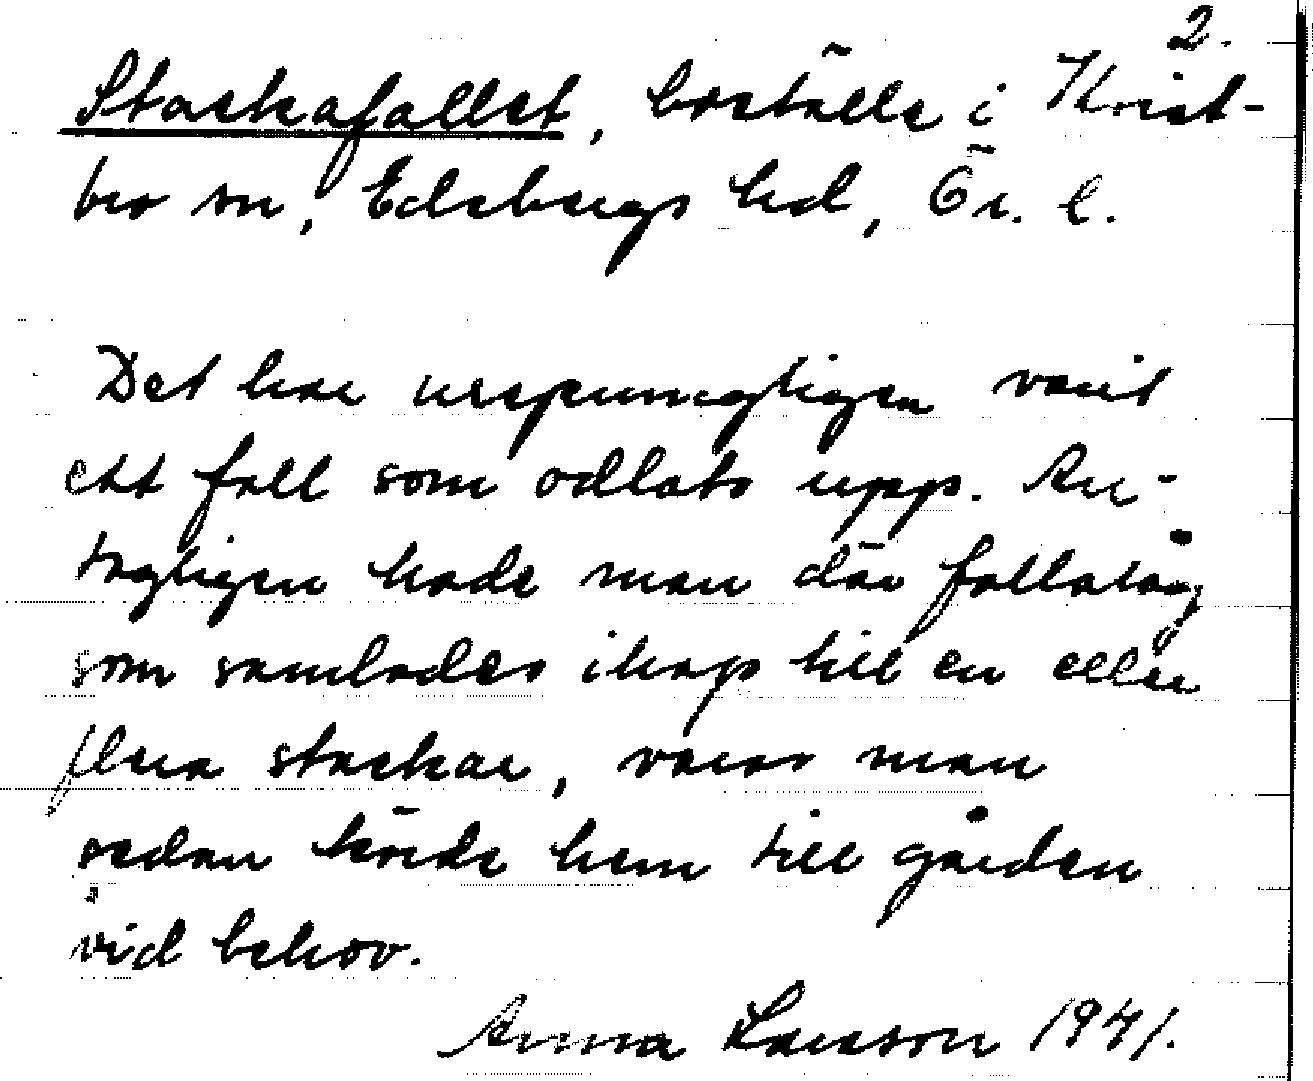 2.
Stackafallet, boställe i Kvist-
bro sn, Edsbergs hd, Ör. l.
Det har ursprungligen varit
ett fall som odlats upp. An-
tagligen hade man där fallatåg
som samlades ihop till en eller
flera stackar, varav man
sedan körde hem till gården
vid behov.
Anna Larsson 1941.